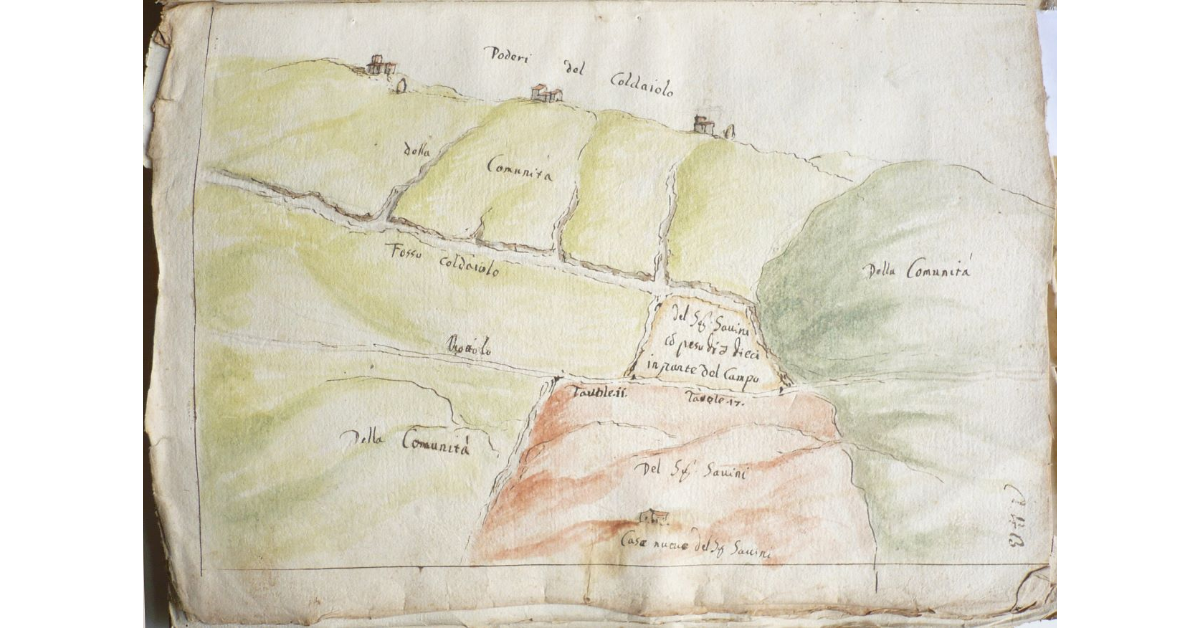 Poderi del Coldaiolo
della Comunità
Fosso Coldaiolo
Della Comunità
del Sig. Savini
dieci
in parte del Campo
Viottolo
Tavole. 11.
Tavole. 17.
Della Comunità
Del Sig. Savini
Case nuove del Sig. Savini